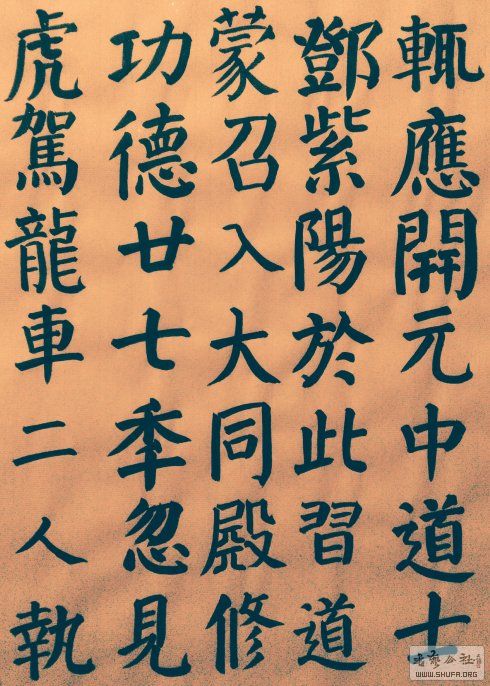 輒應開元中道士
鄧紫陽於此習道
蒙召入大同殿修
功德廿七秊忽見
虎駕龍車二人執
書藝公社
WWW.SHUFA.ORG